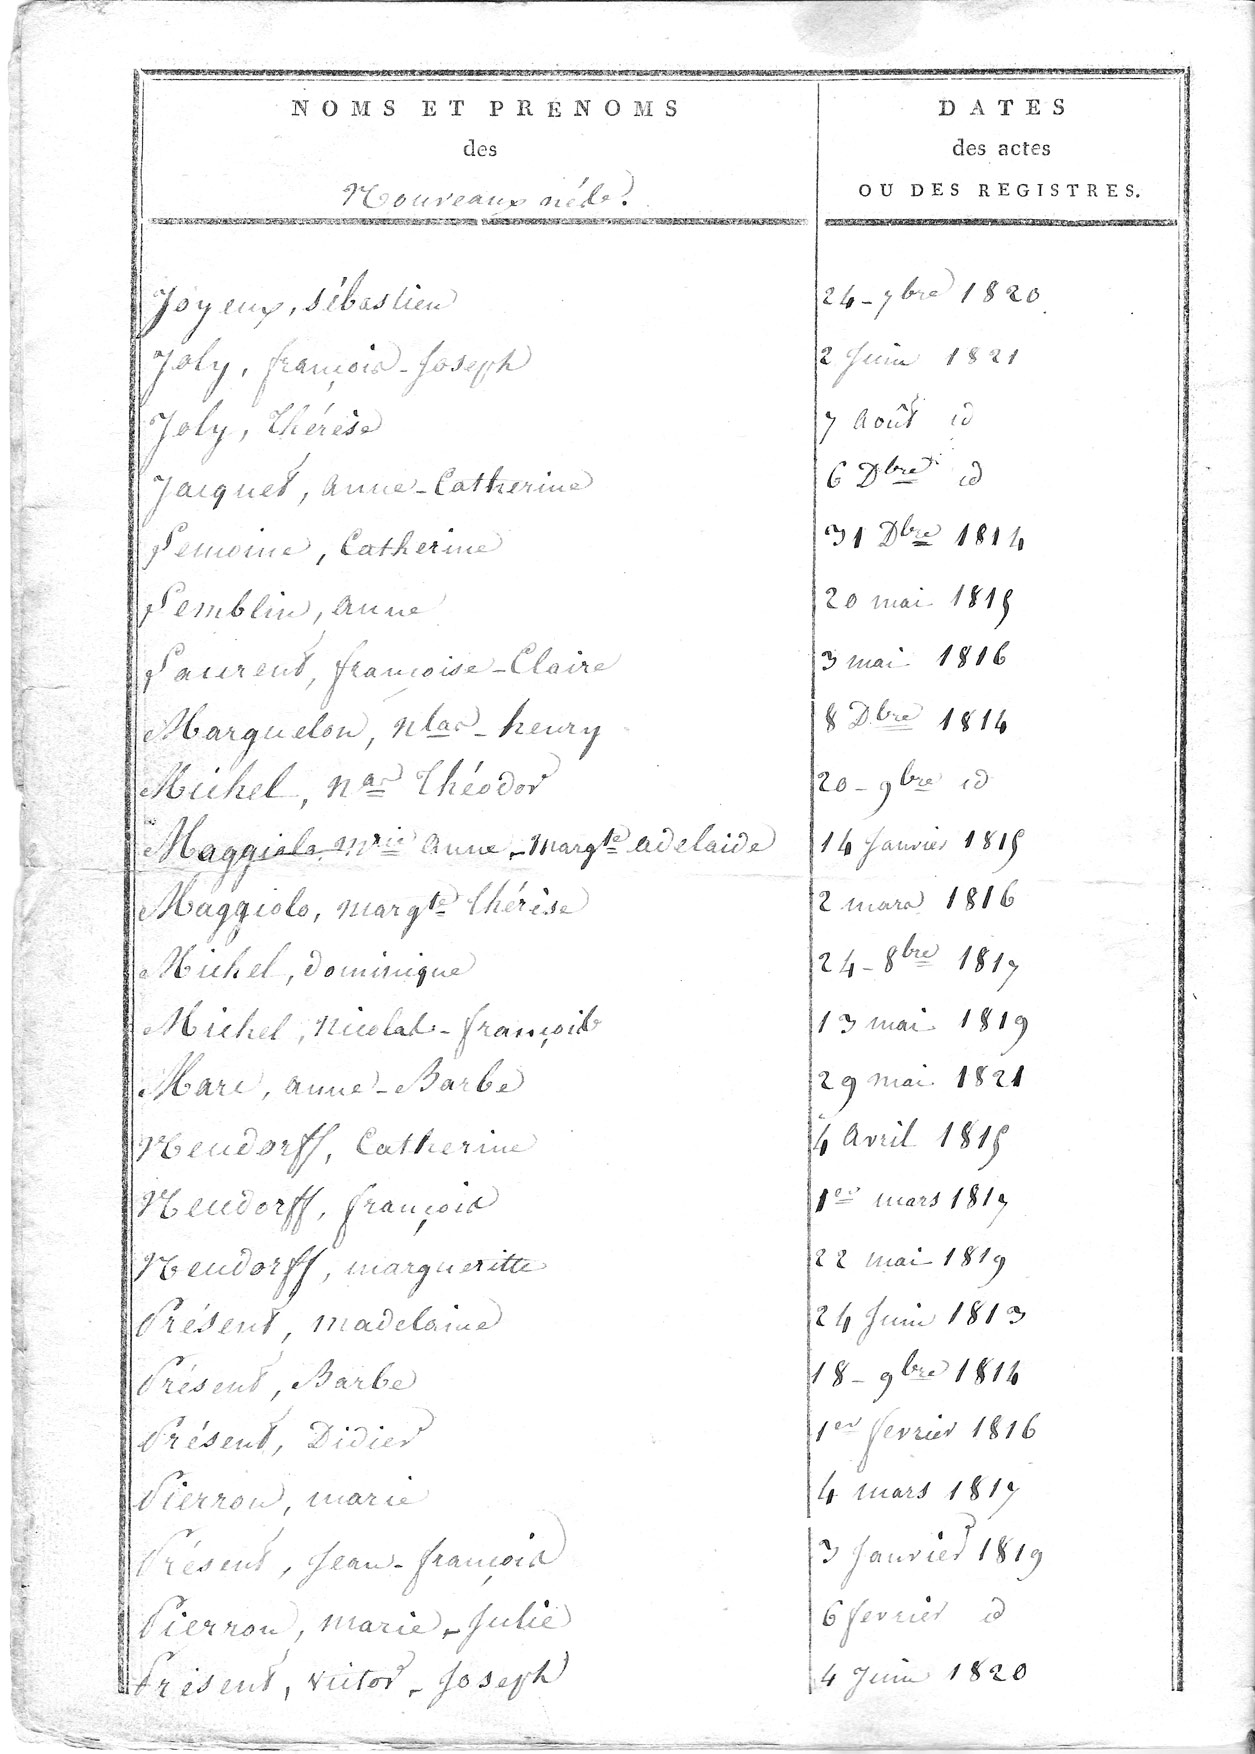 NOMS ET PRENOMS
des
Nouveaux nés.
DATES
des actes
OU DES REGISTRES.
Joyeux, sébastien 24 - 7bre 1820
Joly, françois - Joseph 2 Juin 1821
Joly, thérèse 7 Août id
Jacquet, anne - Catherine 6 Dbre id
Lemoine, Catherine 31 Dbre 1814
Lemblin, anne 20 mai 1815
Laurent, françoise - Claire 3 mai 1816
Marguelon, nlas - henry 8 Dbre 1814
Michel, nas théodor 20 - 9bre id
Maggiolo, mrie anne - margte adelaide 14 Janvier 1815
Maggiolo, margte thérèse 2 mars 1816
Michel, dominique 24 - 8bre 1817
Michel, nicolas - françois 13 mai 1819
Marc, anne - Barbe 29 mai 1821
Neudorff, Catherine 4 Avril 1815
Neudorff, françois 1er mars 1817
Neudorff, margueritte 22 mai 1819
Présent, madelaine 24 Juin 1813
Présent, Barbe 18 - 9bre 1814
Présent, Didier 1er fevrier 1816
Pierron, marie 4 mars 1817
Présent, Jean - françois 3 Janvier 1819
Pierron, marie - Julie 6 fevrier id
Présent, victor - Joseph 4 Juin 1820